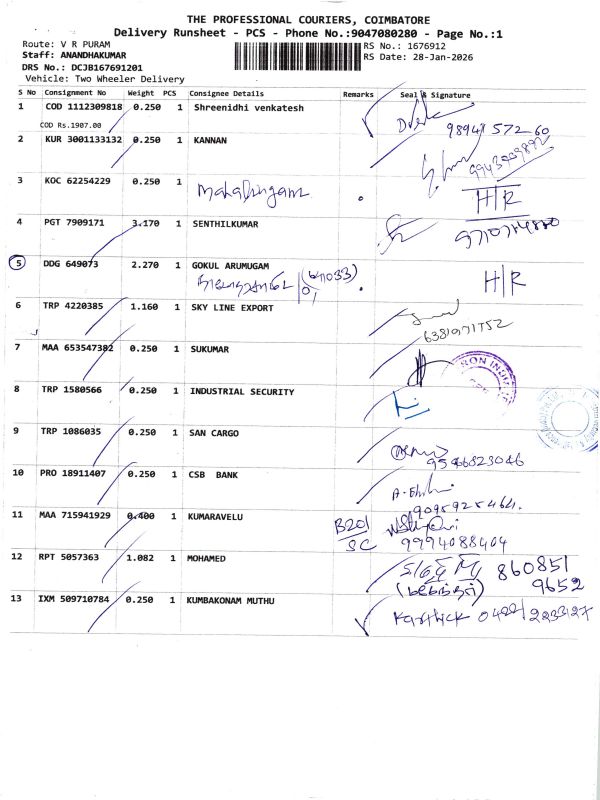 THE PROFESSIONAL COURIERS, COIMBATORE
Delivery Runsheet - PCS - Phone No.:9047080280 - Page No.:1
Route: V R PURAM
RS No.: 1676912
Staff: ANANDHAKUMAR
RS Date: 28-Jan-2026
DRS No.: DCJB167691201
Vehicle: Two Wheeler Delivery
S No Consignment No Weight PCS Consignee Details Remarks Seal & Signature
1 COD 1112309818 0.250 1 Shreenidhi venkatesh
COD Rs.1907.00
98941 572 60
2 KUR 3001133132 0.250 1 KANNAN
3 KOC 62254229 0.250 1 H/R
4 PGT 7909171 3.170 1 SENTHILKUMAR
5 DDG 649073 2.270 1 GOKUL ARUMUGAM
(641033) H/R
6 TRP 4220385 1.160 1 SKY LINE EXPORT
7 MAA 653547382 0.250 1 SUKUMAR
8 TRP 1580566 0.250 1 INDUSTRIAL SECURITY
9 TRP 1086035 0.250 1 SAN CARGO
9566823046
10 PRO 18911407 0.250 1 CSB BANK
9095925464.
11 MAA 715941929 0.400 1 KUMARAVELU B201
SC 9994088404
12 RPT 5057363 1.082 1 MOHAMED 860851
9652
13 IXM 509710784 0.250 1 KUMBAKONAM MUTHU Karthick 0422/223327